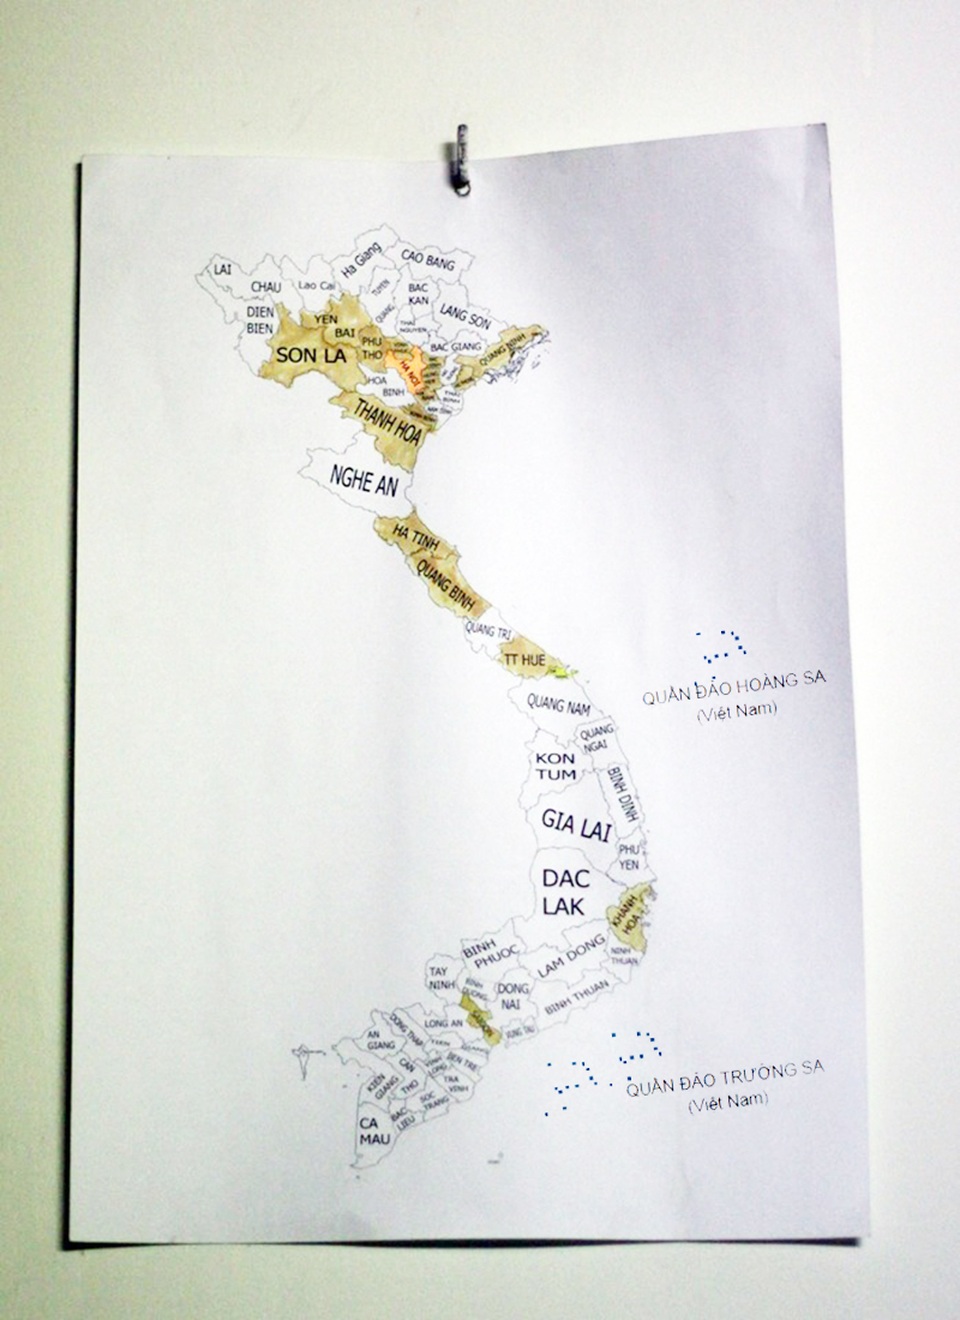 LAI
CHAU
Lao Cai
Ha Giang
CAO BANG
DIEN
BIEN
TUYEN
QUANG
BAC
KAN
LANG SON
THAI
NGUYEN
YEN
BAI
PHU
THO
SON LA
BAC GIANG
QUANG NINH
HA NOI
HOA
BINH
THAI
BINH
THANH HOA
NGHE AN
HA TINH
QUANG BINH
QUANG TRI
TT HUE
QUANG NAM
QUANG
NGAI
KON
TUM
BINH DINH
GIA LAI
PHU
YEN
DAC
LAK
KHANH
HOA
NINH
THUAN
LAM DONG
BINH
PHUOC
BINH THUAN
TAY
NINH
BINH
DUONG
DONG
NAI
SAIGON
VUNG TAU
LONG AN
DONG THAP
AN
GIANG
BEN TRE
TRA
VINH
CAN
THO
KIEN
GIANG
SOC
TRANG
BAC
LIEU
CA
MAU
QUẦN ĐẢO HOÀNG SA
(Việt Nam)
QUẦN ĐẢO TRƯỜNG SA
(Việt Nam)